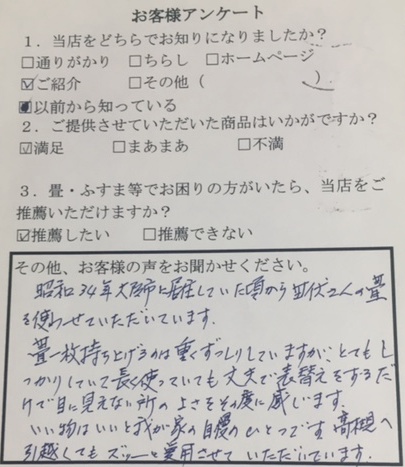 お客様アンケート
1．当店をどちらでお知りになりましたか？
□通りがかり　□ちらし　□ホームページ
☑ご紹介　□その他（　　　　　）
■以前から知っている
2．ご提供させていただいた商品はいかがですか？
☑満足　□まあまあ　□不満
3．畳・ふすま等でお困りの方がいたら、当店をご
推薦いただけますか？
☑推薦したい　□推薦できない
その他、お客様の声をお聞かせください。
昭和34年大阪市に居住していた頃から さんの畳
を使わせていただいています.
畳一枚持ち上げるのは重くずっしりしていますが、とてもし
っかりしていて長く使っていても丈夫で表替えをするだ
けで目に見えない所のよさをその度に感じます.
いい物はいいと我が家の自慢のひとつです 高槻へ
引越してもズーッと愛用させていただいています.